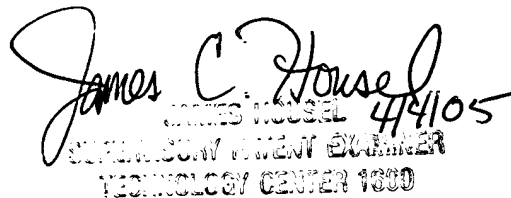 James C. Housel
4/4/05
JAMES HOUSEL
SUPERVISORY PATENT EXAMINER
TECHNOLOGY CENTER 1600